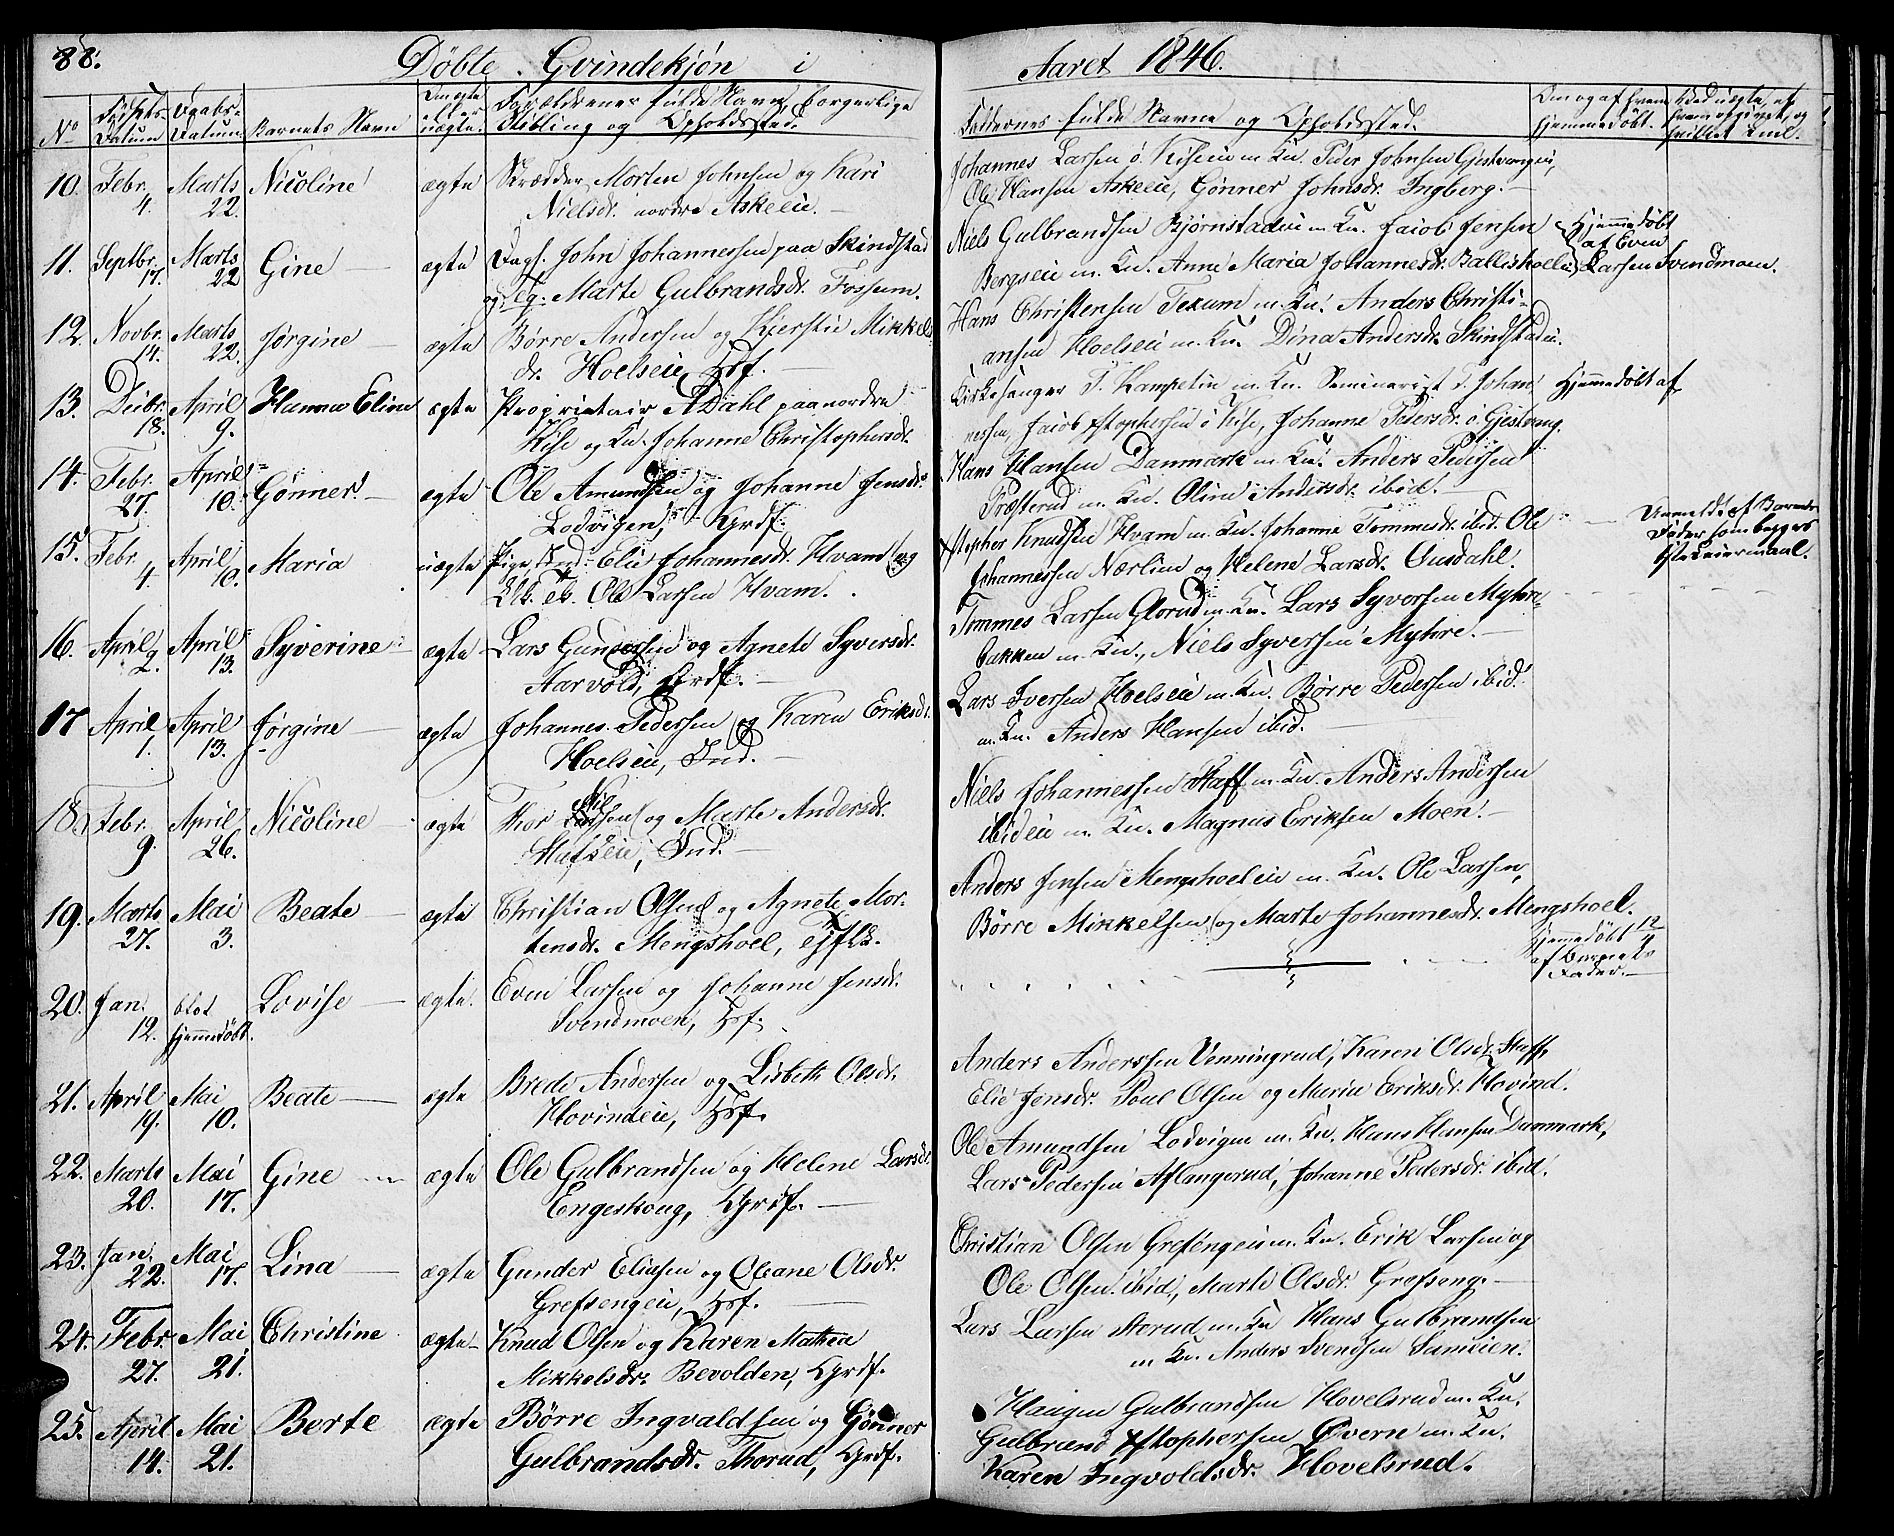 88. Döbte. Qvindekjön i Aaret 1846.
No Födsels-Datum Daabs-Datum Barnets Navn Om ægte eller uægte. Forældrenes fulde Navne, borgerlige Stilling og Opholdssted. Faddernes fulde Navne og Opholdssted. Om og af hvem hjemmedöbt.
10. Febr. 4. Marts 22. Nicoline ægte Skrædder Morten Johnsen og Kari
Nielsdr. nordre Askeeie.
Johannes Larsen ö. Kiseeie m. Kn. Peder Johnsen Gjestvangeie,
Ole Hansen Askeeie, Gönner Johnsdr. Ingberg.
11. Septbr. 17. Marts 22 Gine ægte Dagl. John Johannessen paa Skindstad
og Eg. Marte Gulbrandsdr. Fossum.
Niels Gulbrandsen Björnstadeie m. Kn. Jacob Jensen
Bergseie m. Kn. Anne Maria Johannesdr. Ballishoelei
Hjemmedöbt
af Even
Larsen Svendmoen.
12. Novbr. 14. Marts 22. Jörgine ægte Börre Andersen og Kjerstie Mikkels
dr. Hoelseie, Hsf.
Hans Christensen Texum m. Kn. Anders Christi-
ansen Hoelseie m. Kn. Dina Andersdr. Skindstadei.
13. Decbr. 18. April 9. Hanna Eline ægte Proprietair A Dahl paa nordre
Kise og Kn. Johanne Christophersdr.
Kirkesanger P. m. Kn. Seminarist T. Johan
nessen, Jacob Xstophersen ö Kise, Johanne Pedersdr. ö. Gjestvang.
Hjemmedöbt af
14. Febr. 27. April 10. Gönner ægte Ole Amundsen og Johanne Jensdr.
Lodvigen, Grdf.
Hans Hansen Danmark m. Kn. Anders Pedersen
Præsterud m. Kn. Oline Andersdr. ibid.
15. Febr. 4. April 10. Maria uægte Pige Elie Johannesdr. Hvam og
Ole Larsen Hvam.
Xstopher Knudsen Hvam m. Kn. Johanne Tommesdr. ibid. Ole
Johannessen Nærlien og Helene Larsdr. Gusdahl.
Anmeldt af Barnets
Fader som begges
1ste Leiermaal.
16. April 2. April 13. Syverine ægte Lars Gundersen og Agnete Syversdr.
Aarvold, Grdf.
Tommes Larsen Glorud m. Kn. Lars Syversen Myhre-
bakken m. Kn., Niels Syversen Myhre.
17 April 1. April 13. Jörgine ægte Johannes Pedersen og Karen Eriksdr.
Hoelseie, Ind.
Lars Iversen Hoelseie m. Kn. Börre Pedersen ibid.
m. Kn. Anders Hansen ibid.
18. Febr. 9. April 26. Nicoline ægte Thor Nilsen og Marte Andersdr.
Stafseie, Ind.
Niels Johannessen Staff m. Kn. Anders Andersen
ibideie m. Kn. Magnus Eriksen Moen.
19. Marts 27. Mai 3. Beate ægte Christian Olsen og Agnete Mor-
tensdr. Mengshoel,
Anders Jensen Mengshoeleie m. Kn. Ole Larsen,
Börre Mikkelsen og Marte Johannesdr. Mengshoel.
20. Jan. 12. blot hjemmedöbt. Lovise ægte. Even Larsen og Johanne Jensdr.
Svendmoen, Hsf.
Hjemmedöbt 12/4
af Barnets
Fader.
21. April 19. Mai 10. Beate ægte Brede Andersen og Lisbeth Olsdr.
Hovindeie, Hsf.
Anders Anderssen Venningrud, Karen Olsdr. Staff,
Elie Jensdr. Poul Olsen og Maria Eriksdr. Hovind.
22. Marts 20. Mai 17. Gine ægte Ole Gulbrandsen og Helene Larsdr.
Engeskoug, Grdf.
Ole Amundsen Lodvigen m. Kn. Hans Hansen Danmark,
Lars Pedersen Aflangerud, Johanne Pedersdr. ibid.
23. Jan. 22. Mai 17. Lina ægte Gunder Eliasen og Oleane Olsdr.
Grefsengeie, Hsf.
Christian Olsen Grefsengeie m. Kn. Erik Larsen og
Ole Olsen ibid., Marte Olsdr. Grefseng.
24. Febr. 27. Mai 21. Christine ægte Knud Olsen og Karen Mathea
Mikkelsdr. Bevolden, Grdf.
Lars Larsen Storud m. Kn Hans Gulbrandsen
m Kn. Anders Svendsen
25. April 14. Mai 21. Berte ægte Börre Ingvaldsen og Gönner
Gulbrandsdr. Thorud, Grdf.
Haagen Gulbrandsen Hovelsrud m. Kn.
Gulbrand Xstophersen Övern m. Kn.
Karen Ingvoldsdr. Hovelsrud.